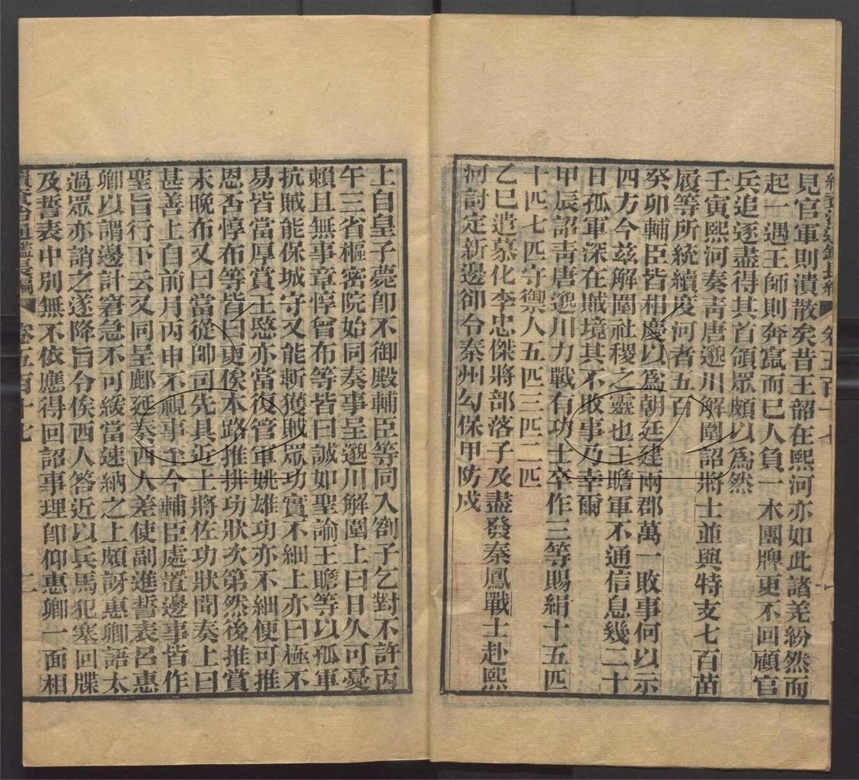 續資治通鑑長編 卷五百十七
見官軍則潰散矣昔王韶在熙河亦如此諸羌紛然而
起一遇王師則奔竄而已人負一木團牌更不回顧官
兵追逐盡得其首領眾頗以為然
壬寅熙河奏青唐邈川解圍詔將士並與特支七百苗
履等所統續度河者五百
癸卯輔臣皆相慶以為朝廷建兩郡萬一敗事何以示
四方今茲解圍社稷之靈也王贍軍不通信息幾二十
日孤軍深在賊境其不敗事乃幸爾
甲辰詔青唐邈川力戰有功士卒作三等賜絹十五匹
十匹七匹守禦人五匹三匹二匹
乙巳遣慕化李忠傑將部落子及盡發秦鳳戰士赴熙
河討定新邊卻令秦州勾保甲防戍
上自皇子薨即不御殿輔臣等同入劄子乞對不許丙
午三省樞密院始同奏事呈邈川解圍上曰日久可憂
賴且無事章惇曾布等皆曰誠如聖諭王贍等以孤軍
抗賊能保城守又能斬獲賊眾功實不細上亦曰極不
易皆當厚賞王愍亦當復管軍姚雄功亦不細便可推
恩否惇布等皆曰更俟本路推排功狀次第然後推賞
未晚布又曰當從帥司先具近上將佐功狀聞奏上曰
甚善上自前月丙申不視事至今輔臣處置邊事皆作
聖旨行下云又同呈鄜延奏西人差使副進誓表呂惠
卿以謂邊計窘急不可緩當速納之上頗訝惠卿語太
過眾亦誚之遂降旨令俟西人答近以兵馬犯塞回牒
及誓表中別無不依應得回詔事理即仰惠卿一面相
續資治通鑑長編 卷五百十七 二